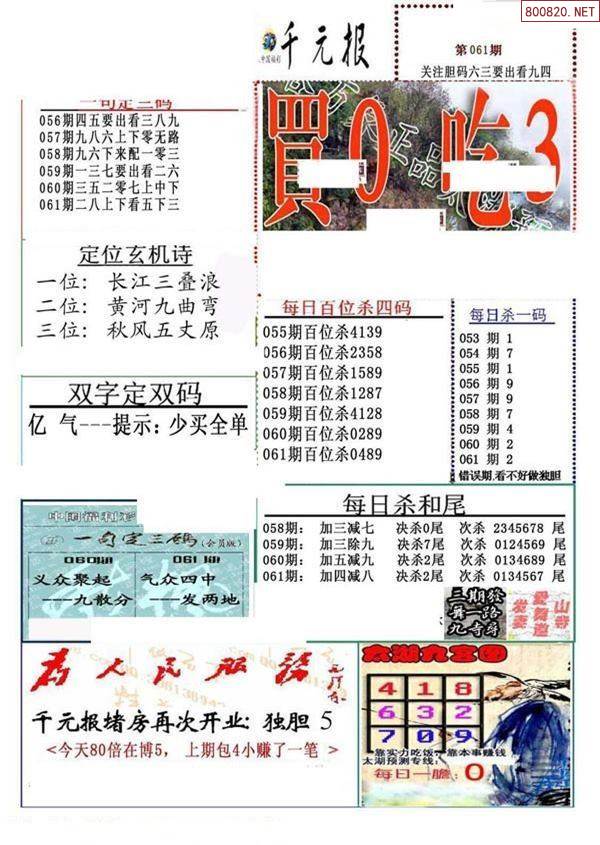 800820.NET
千元报
第061期
关注胆码六三要出看九四
一句定三码
056期四五要出看三八九
057期九八六上下零无路
058期九六下来配一零三
059期一三七要出看二六
060期三五二零七上中下
061期二八上下看五下三
買0 吃3
定位玄机诗
一位: 长江三叠浪
二位: 黄河九曲弯
三位: 秋风五丈原
每日百位杀四码
055期百位杀4139
056期百位杀2358
057期百位杀1589
058期百位杀1287
059期百位杀4128
060期百位杀0289
061期百位杀0489
每日杀一码
053 期 1
054 期 7
055 期 1
056 期 9
057 期 9
058 期 7
059 期 4
060 期 2
061 期 2
错误期,看不好做独胆
双字定双码
亿 气---提示: 少买全单
每日杀和尾
058期: 加三减七 决杀0尾 次杀 2345678 尾
059期: 加三除九 决杀7尾 次杀 0124569 尾
060期: 加五减九 决杀2尾 次杀 0134689 尾
061期: 加四减八 决杀2尾 次杀 0134567 尾
中国福利彩
一句定三码 (会员版)
060期
义众聚起
---九散分
061期
气众四中
---发两地
三期發
算一路
九寺尋
山寺
为人民服务
千元报堵房再次开业: 独胆 5
<今天80倍在博5, 上期包4小赚了一笔 >
太湖九宫图
4 1 8
6 3 2
7 0 9
靠实力吃饭, 靠本事赚钱
太湖预测专线:
每日一胆: 0